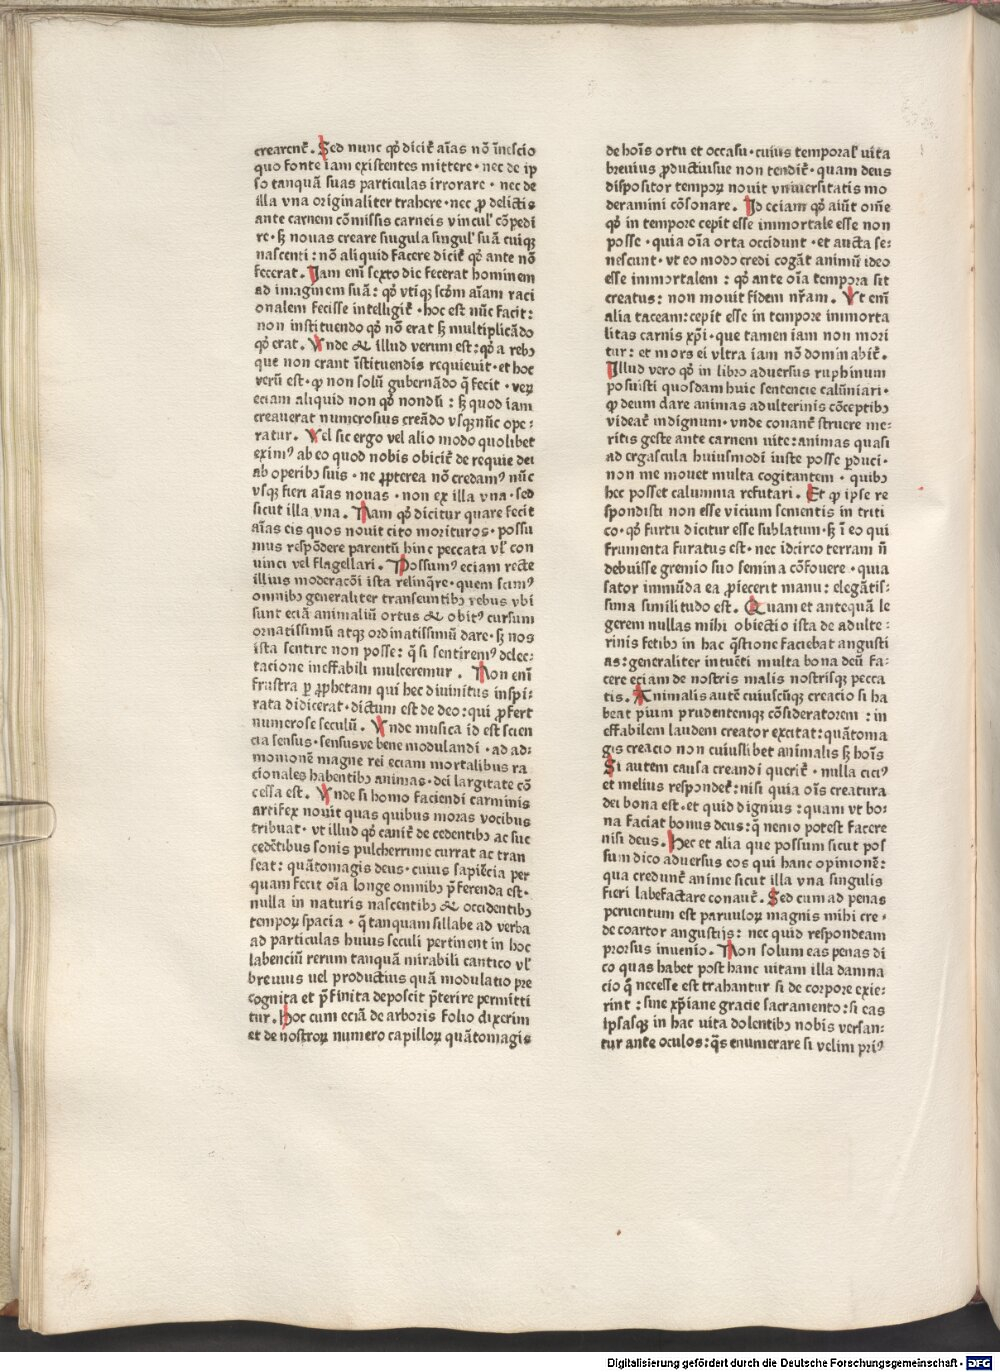 crearent᷑. Sed nunc qđ dicit᷑ aīas nō īnescio
quo fonte iam existentes mittere · nec de ip
so tanquā suas particulas irrorare · nec de
illa vna originaliter trahere · nec ꝓ delictis
ante carnem cōmissis carneis vincul' cōpedi
re · sꝫ nouas creare singula singul' suā cuiqꝫ
nascenti : nō aliquid facere dicit᷑ qđ ante nō
fecerat. Jam enī sexto die fecerat hominem
ad imaginem suā : qđ vtiqꝫ scđm aīam raci
onalem fecisse intelligit᷑ · hoc est nūc facit :
non instituendo qđ nō erat sꝫ multiplicādo
qđ erat. Vnde & illud verum est : qđ a rebꝫ
que non erant īstituendis requieuit · et hoc
verū est · ꝙ non solū gubernādo q̄ fecit · veꝝ
eciam aliquid non qđ nondū : sꝫ quod iam
creauerat numerosius creādo vsqꝫnūc ope:
ratur. Vel sic ergo vel alio modo quolibet
eximꝰ ab eo quod nobis obicit᷑ de requie dei
ab operibꝫ suis · ne ꝓpterea nō credamꝰ nūc
vsqꝫ fieri aīas nouas · non ex illa vna · sed
sicut illa vna. Nam qđ dicitur quare fecit
aīas eis quos nouit cito morituros · possu
mus respōdere parentū hinc peccata vl' con
uinci vel flagellari. Possumꝰ eciam recte
illius moderacōi ista relinq̄re · quem scimꝰ
omnibꝫ generaliter transeuntibꝫ rebus vbi
sunt eciā animaliū ortus & obitꝰ cursum
ornatissimū atqꝫ ordinatissimū dare · sꝫ nos
ista sentire non posse : q̄ si sentiremꝰ delec:
tacione ineffabili mulceremur. Non enī
frustra ꝑ ꝓphetam qui hec diuinitus inspi:
rata didicerat · dictum est de deo : qui ꝓfert
numerose seculū. Vnde musica id est scien
cia sensus · sensusve bene modulandi · ad ad:
monionē magne rei eciam mortalibus ra
cionales habentibꝫ animas · dei largitate cō
cessa est. Vnde si homo faciendi carminis
artifex nouit quas quibus moras vocibus
tribuat · vt illud qđ canit᷑ de cedentibꝫ ac suc
cedētibus sonis pulcherrime currat ac tran
seat : quātomagis deus · cuius sapiēcia per
quam fecit oīa longe omnibꝫ p̄ferenda est ·
nulla in naturis nascentibꝫ & occidentibꝫ
tempoꝝ spacia · q̄ tanquam sillabe ad verba
ad particulas huius seculi pertinent in hoc
labenciū rerum tanquā mirabili cantico vl'
breuius uel productius quā modulatio pre
cognita et p̄finita deposcit p̄terire permitti
tur. Hoc cum eciā de arboris folio dixerim
et de nostroꝝ numero capilloꝝ quātomagis
de hoīs ortu et occasu · cuius temporal' uita
breuius ꝓductiusue non tendit᷑ · quam deus
dispositor tempoꝝ nouit vniuersitatis mo
deramini cōsonare. Id eciam qđ aiūt om̄e
qđ in tempore cepit esse immortale esse non
posse · quia oīa orta occidunt · et aucta se:
nescunt · vt eo modo credi cogāt animū ideo
esse immortalem : qđ ante oīa tempora sit
creatus : non mouit fidem nr̄am. Vt enī
alia taceam : cepit esse in tempore immorta
litas carnis xp̄i · que tamen iam non mori
tur : et mors ei vltra iam nō dominabit᷑.
Illud vero qđ in libro aduersus ruphinum
posuisti quosdam huic sentencie calūniari ·
ꝙ deum dare animas adulterinis cōceptibꝫ
videat᷑ indignum · vnde conant᷑ struere me:
ritis geste ante carnem uite : animas quasi
ad ergascula huiusmodi iuste posse ꝑduci ·
non me mouet multa cogitantem · quibꝫ
hec posset calumnia refutari. Et ꝙ ipse re
spondisti non esse vicium sementis in triti
co · qđ furtu dicitur esse sublatum · sꝫ ī eo qui
frumenta furatus est · nec idcirco terram n̄
debuisse gremio suo semina cōfouere · quia
sator immūda ea ꝓiecerit manu : elegātis:
sima similitudo est. Quam et antequā le
gerem nullas mihi obiectio ista de adulte:
rinis fetibꝫ in hac q̄stione faciebat angusti
as : generaliter intuēti multa bona deū fa:
cere eciam de nostris malis nostrisqꝫ pecca
tis. Animalis autē cuiuscūqꝫ creacio si ha
beat pium prudentemqꝫ cōsideratorem : in
effabilem laudem creator excitat : quātoma
gis creacio non cuiuslibet animalis sꝫ hoīs
Si autem causa creandi querit᷑ · nulla ciciꝰ
et melius respondet᷑ : nisi quia oīs creatura
dei bona est · et quid dignius : quam vt bo:
na faciat bonus deus : q̄ nemo potest facere
nisi deus. Hec et alia que possum sicut pos
sum dico aduersus eos qui hanc opinionē :
qua credunt᷑ anime sicut illa vna singulis
fieri labefactare conant᷑. Sed cum ad penas
peruentum est paruuloꝝ magnis mihi cre:
de coartor angustijs : nec quid respondeam
prorsus inuenio. Non solum eas penas di
co quas habet post hanc uitam illa damna
cio q̄ necesse est trahantur si de corpore exie:
rint : sine xp̄iane gracie sacramento : si eas
ipsasqꝫ in hac uita dolentibꝫ nobis versan:
tur ante oculos : q̄s enumerare si velim priꝰ
Digitalisierung gefördert durch die Deutsche Forschungsgemeinschaft - DFG